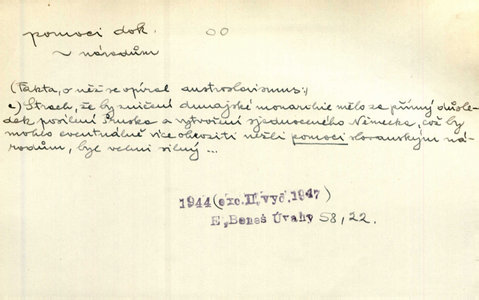 pomoci dok.
~ národům
(Fakta, o něž se opíral austroslavismus:)
c) Strach, že by zničení dunajské monarchie mělo za přímý důsle-
dek posílení Pruska a vytvoření sjednoceného Německa, což by
mohlo eventuálně více ohroziti nežli pomoci slovanským ná-
rodům, byl velmi silný ...
1944 (exc. II, vyd. 1947)
E, Beneš Úvahy 58, 22.